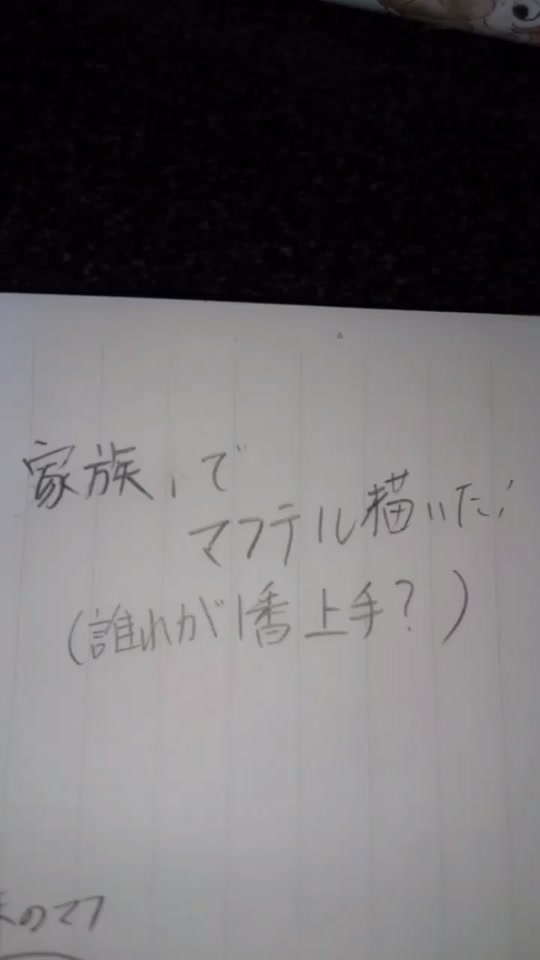 家族、で
マフテル描いた!
(誰れが1番上手?)
のマフ